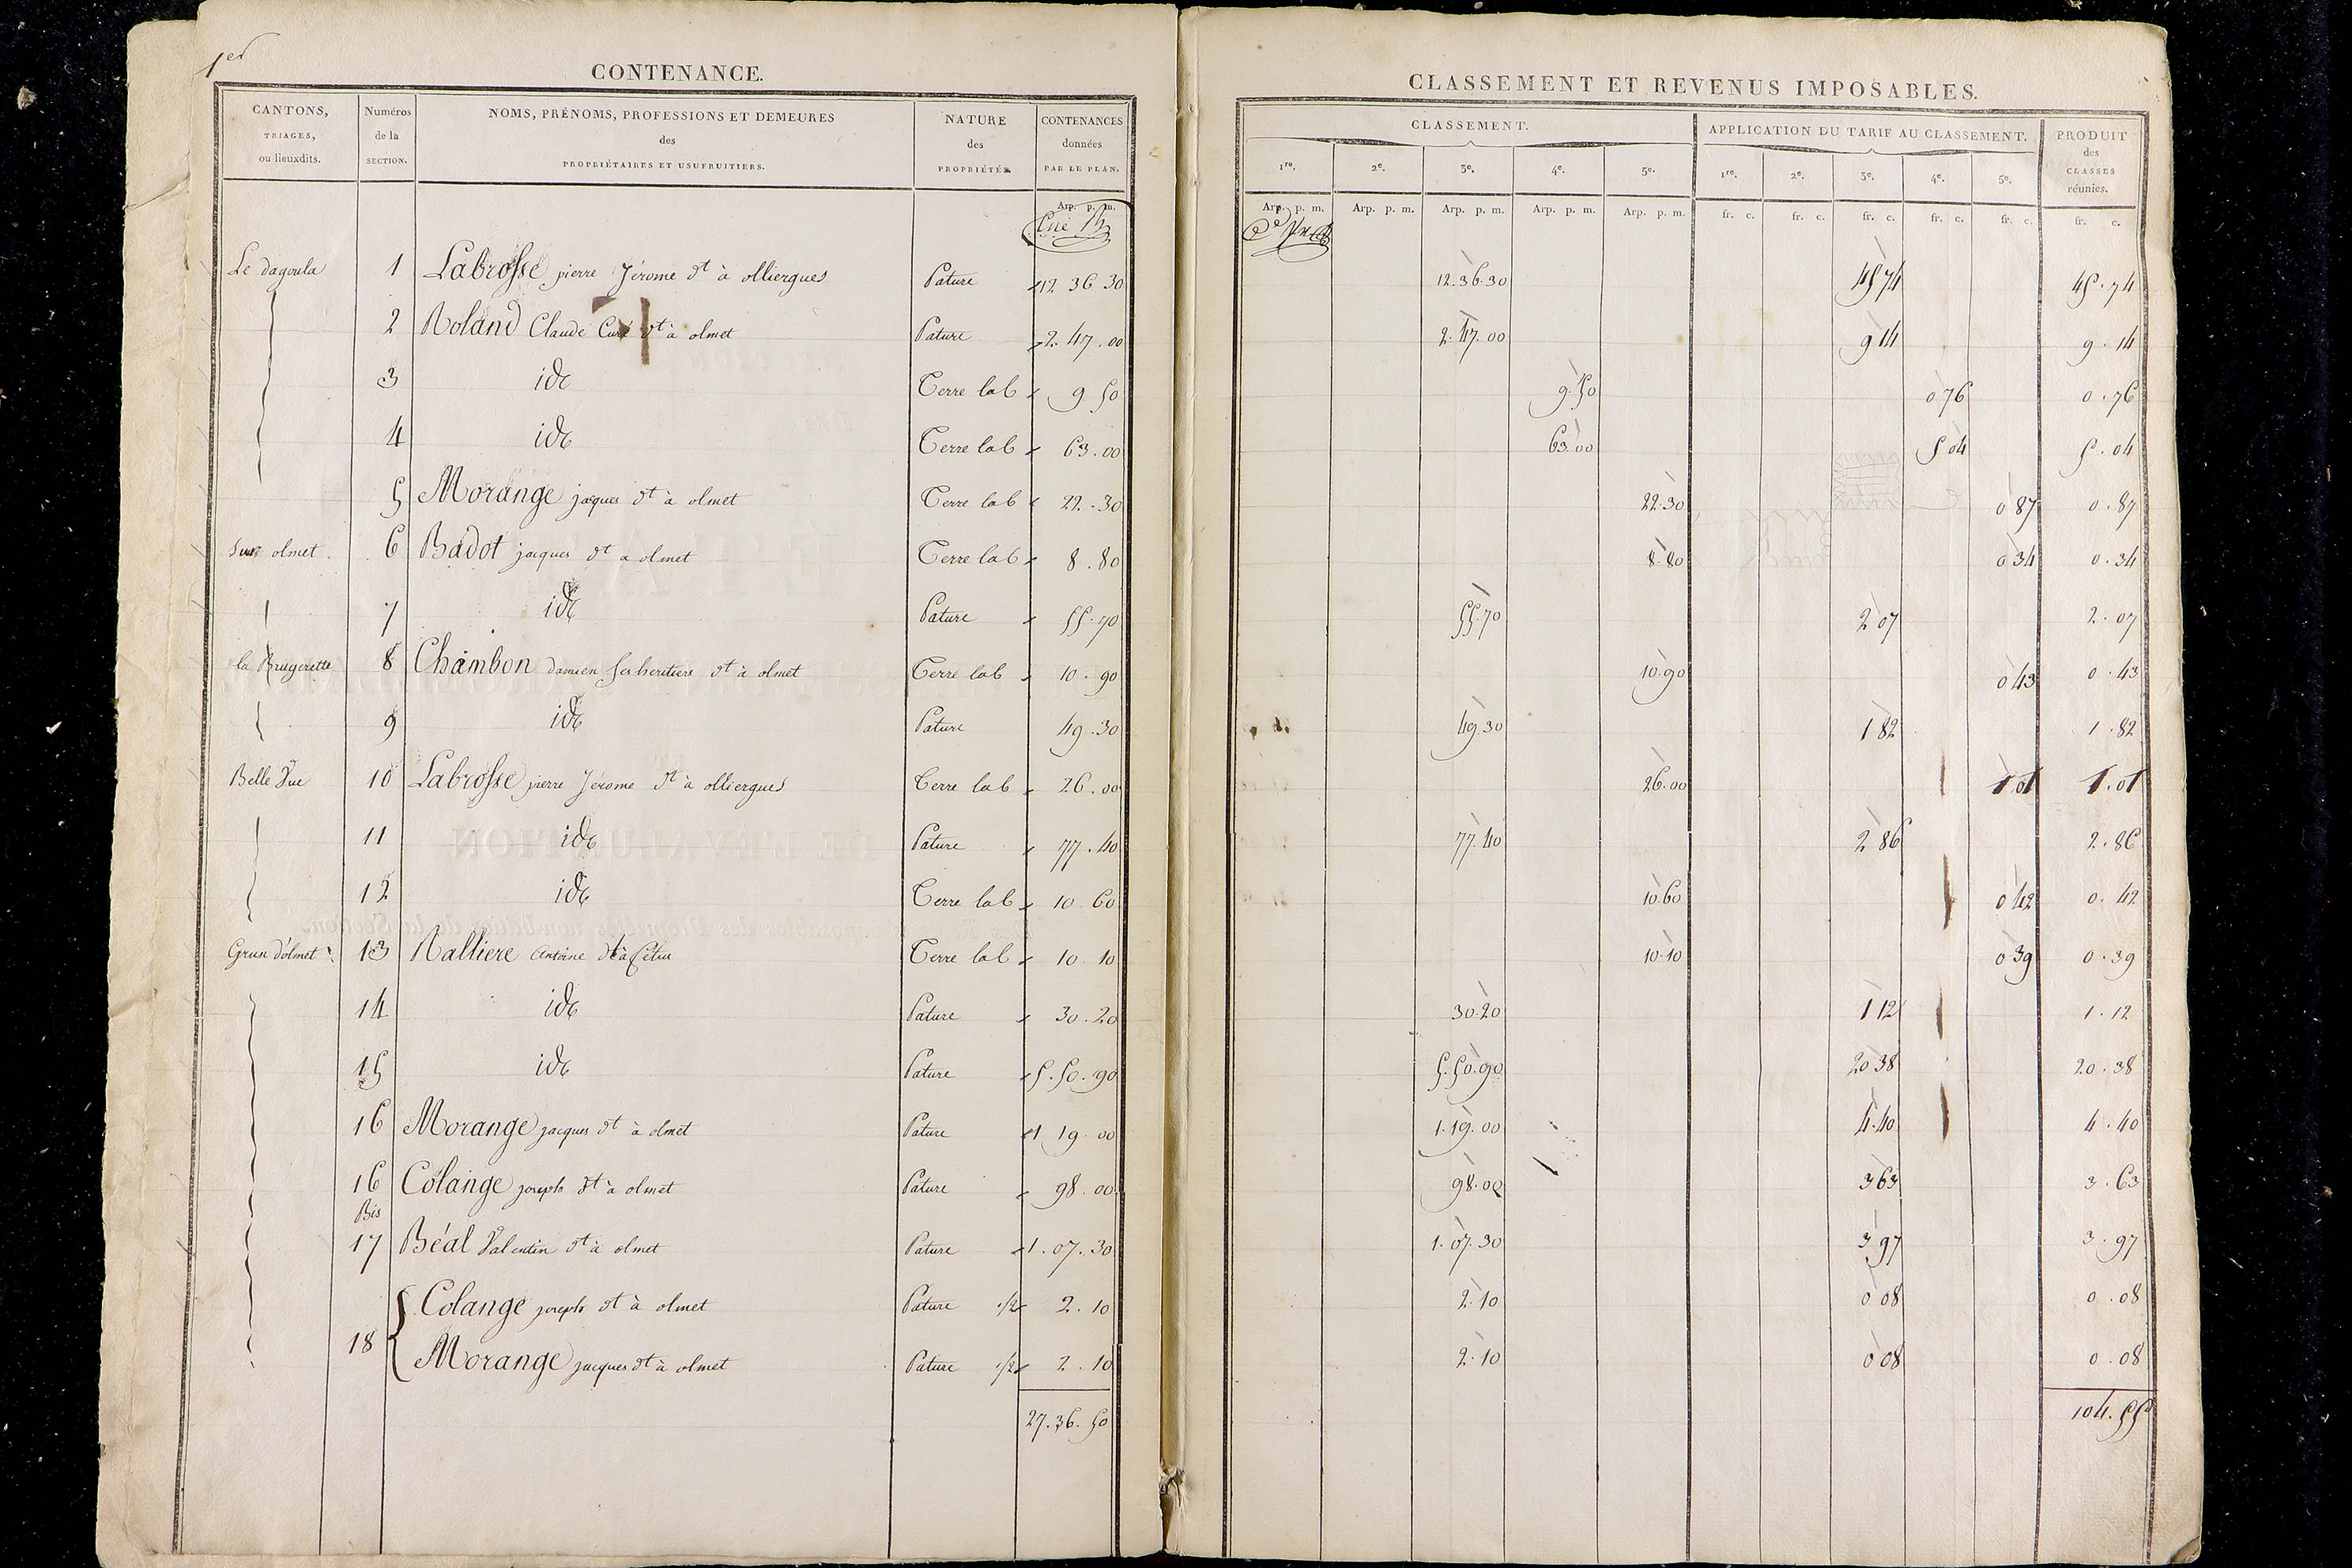 1er
CONTENANCE.
CANTONS, TRIAGES, ou lieuxdits. Numéros de la SECTION. NOMS, PRÉNOMS, PROFESSIONS ET DEMEURES des PROPRIÉTAIRES ET USUFRUITIERS. NATURE des PROPRIÉTÉS. CONTENANCES données PAR LE PLAN.
Arp. p. m.
Le dagoula 1 Labrosse pierre Jérome dt à olliergues Pature 12 36 30
2 Roland Claude Curé dt à olmet Pature 2. 47. 00
3 ide Terre lab 9 50
4 ide Terre lab 63. 00
5 Morange jacques dt à olmet Terre lab 22. 30
Sur olmet 6 Badot jacques dt a olmet Terre lab 8. 80
7 ide Pature 55. 70
la Brugerette 8 Chambon damien ses heritiers dt à olmet Terre lab 10. 90
9 ide Pature 49. 30
Belle Vue 10 Labrosse pierre Jérome dt à olliergues Terre lab 26. 00
11 ide Pature 77. 40
12 ide Terre lab 10 60
Grun d'olmet 13 Ralliere Antoine dt à Terre lab 10 10
14 ide Pature 30. 20
15 ide Pature 5. 50. 90
16 Morange jacques dt à olmet Pature 1 19 00
16 Bis Colange joseph dt à olmet Pature 98. 00
17 Béal Valentin dt à olmet Pature 1. 07. 30
18 Colange joseph dt à olmet Pature 1/2 2. 10
Morange jacques dt à olmet Pature 1/2 2. 10
27. 36. 50
CLASSEMENT ET REVENUS IMPOSABLES.
CLASSEMENT. APPLICATION DU TARIF AU CLASSEMENT. PRODUIT des CLASSES réunies.
1re. 2e. 3e. 4e. 5e. 1re. 2e. 3e. 4e. 5e.
Arp. p. m. Arp. p. m. Arp. p. m. Arp. p. m. Arp. p. m. fr. c. fr. c. fr. c. fr. c. fr. c. fr. c.
12. 36. 30 45 74 45. 74
2. 47. 00 9 14 9. 14
9. 50 0 76 0. 76
63. 00 5 04 5. 04
22. 30 0 87 0. 87
8. 80 0 34 0. 34
55. 70 2 07 2. 07
10. 90 0 43 0. 43
49. 30 1 82 1. 82
26. 00 1. 01 1. 01
77. 40 2 86 2. 86
10 60 0 42 0. 42
10. 10 0 39 0. 39
30. 20 1 12 1. 12
5. 50. 90 20 38 20. 38
1. 19. 00 4. 40 4. 40
98. 00 3 63 3. 63
1. 07. 30 3 97 3. 97
2. 10 0 08 0. 08
2. 10 0 08 0. 08
104. 55